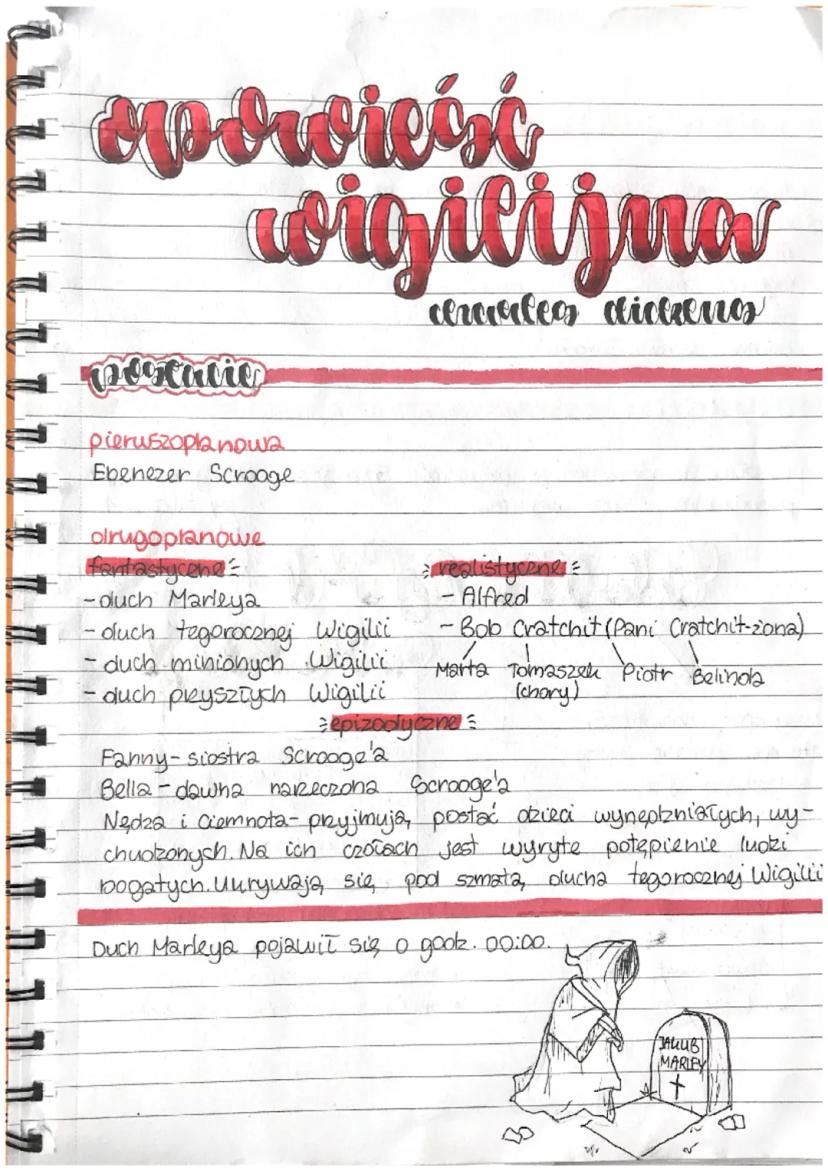 opowieść
wigilijna
charles dickens
postacie
pierwszoplanowa
Ebenezer Scrooge
drugoplanowe
fantastyczne
- duch Marleya
- duch tegorocznej Wigilii
- duch minionych Wigilii
- duch przyszłych Wigilii
realistyczne
- Alfred
- Bob Cratchit (Pani Cratchit-żona)
Marta Tomaszek Piotr Belinda
(chory)
epizodyczne
Fanny - siostra Scrooge'a
Bella - dawna narzeczona Scrooge'a
Nędza i Ciemnota - przyjmują postać dzieci wynędzniałych, wy-
chudzonych. Na ich czołach jest wyryte potępienie ludzi
bogatych. Ukrywają się pod szmatą ducha tegorocznej Wigilii
Duch Marleya pojawił się o godz. 00:00.
JAKUB
MARLEY